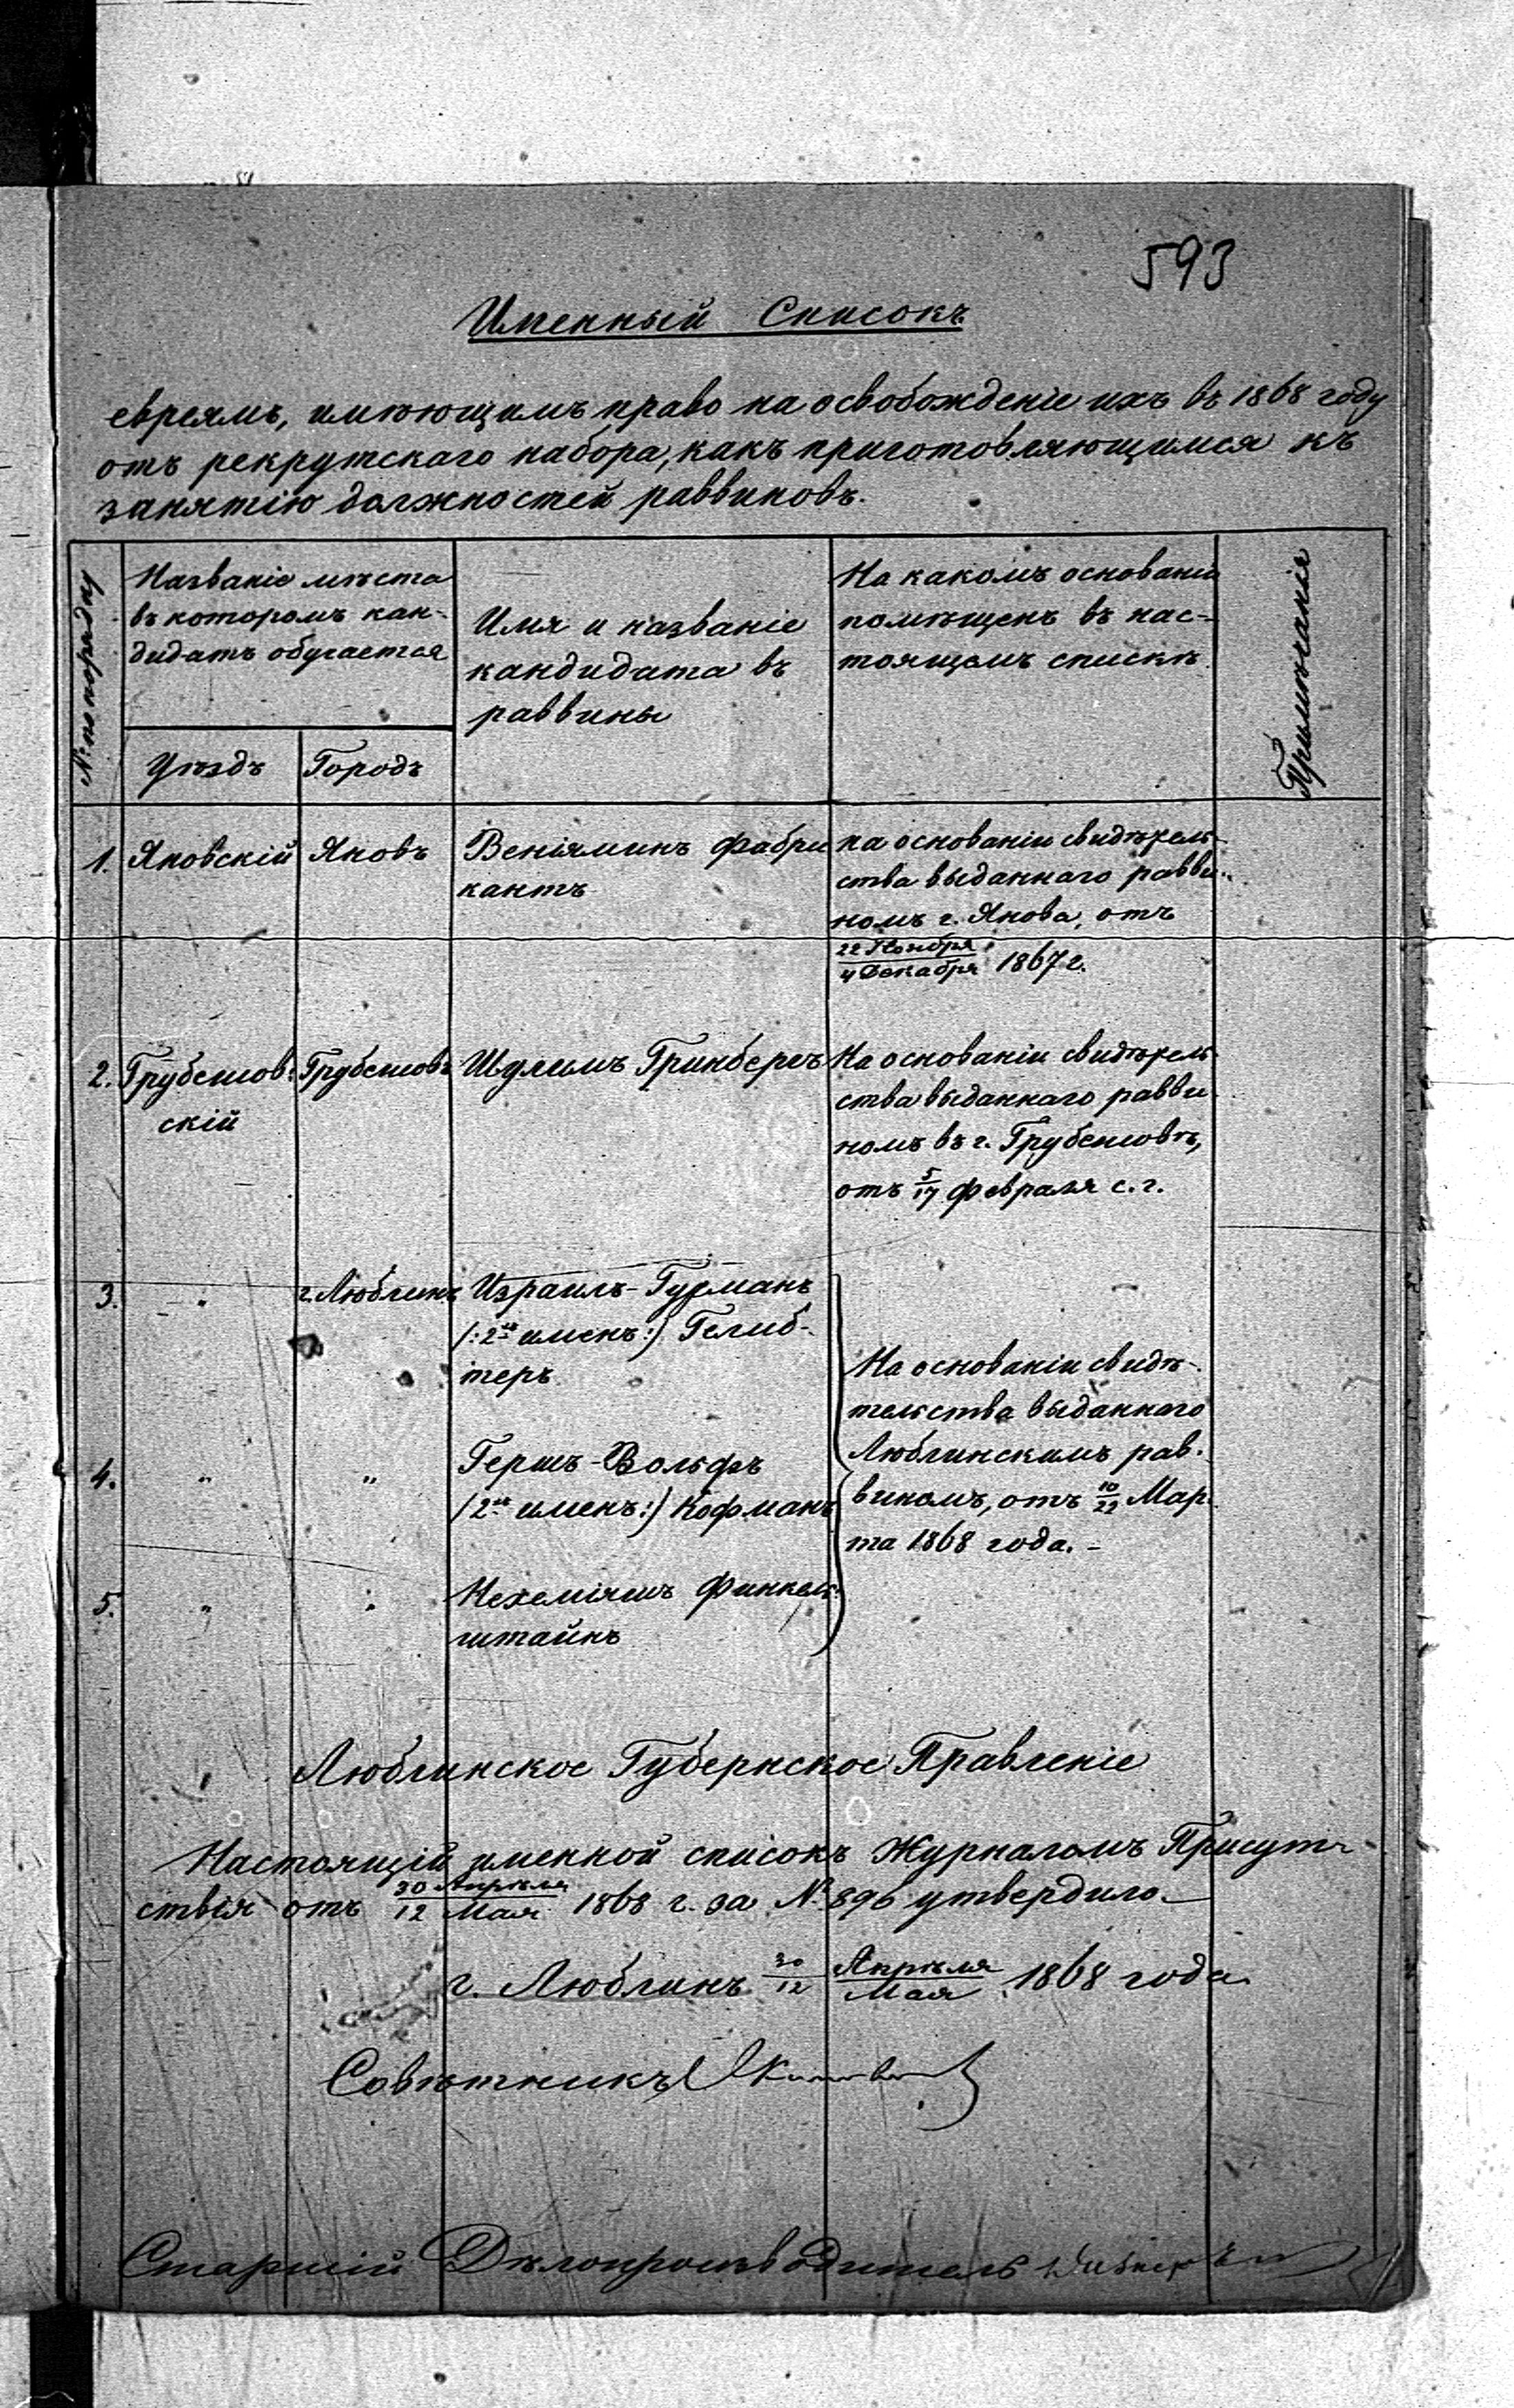 593
Именный Списокъ
евреямъ, имѣющимъ право на освобожденіе ихъ въ 1868 году
отъ рекрутскаго набора, какъ приготовляющимся къ
занятію должностей раввиновъ.
№ по порядку
Названіе мѣста
въ которомъ кан-
дидатъ обучается
Уѣздъ
Городъ
Имя и названіе
кандидата въ
раввины
На какомъ основаніи
помѣщенъ въ нас-
тоящемъ спискѣ.
Примѣчанія
1. Яновскій
Яновъ
Веніяминъ Фабри
кантъ
на основаніи свидѣтель-
ства выданнаго равви-
номъ г. Янова, отъ
22 Ноября
4 Декабря 1867 г.
2. Грубешов-
скій
Грубешовъ
Шулимъ Гринбергъ
На основаніи свидѣтель-
ства выданнаго равви-
номъ въ г. Грубешовѣ,
отъ 5/17 февраля с. г.
3. "
г. Люблинъ
Израиль-Гурманъ
/:2хъ именъ:/ Гелиб-
теръ
4. "
"
Гершъ-Вольфъ
/2хъ именъ:/ Кофманъ
5. "
"
Нехеміяшъ Финкель-
штайнъ
На основаніи свидѣ-
тельства выданнаго
Люблинскимъ рав-
виномъ, отъ 10/22 Мар-
та 1868 года. -
Люблинское Губернское Правленіе
Настоящій именной списокъ Журналомъ Присут-
ствія отъ 30 Апрѣля / 12 Мая 1868 г. за № 896 утвердило.
г. Люблинъ 30 Апрѣля / 12 Мая 1868 года.
Совѣтникъ
Старшій Дѣлопроизводитель